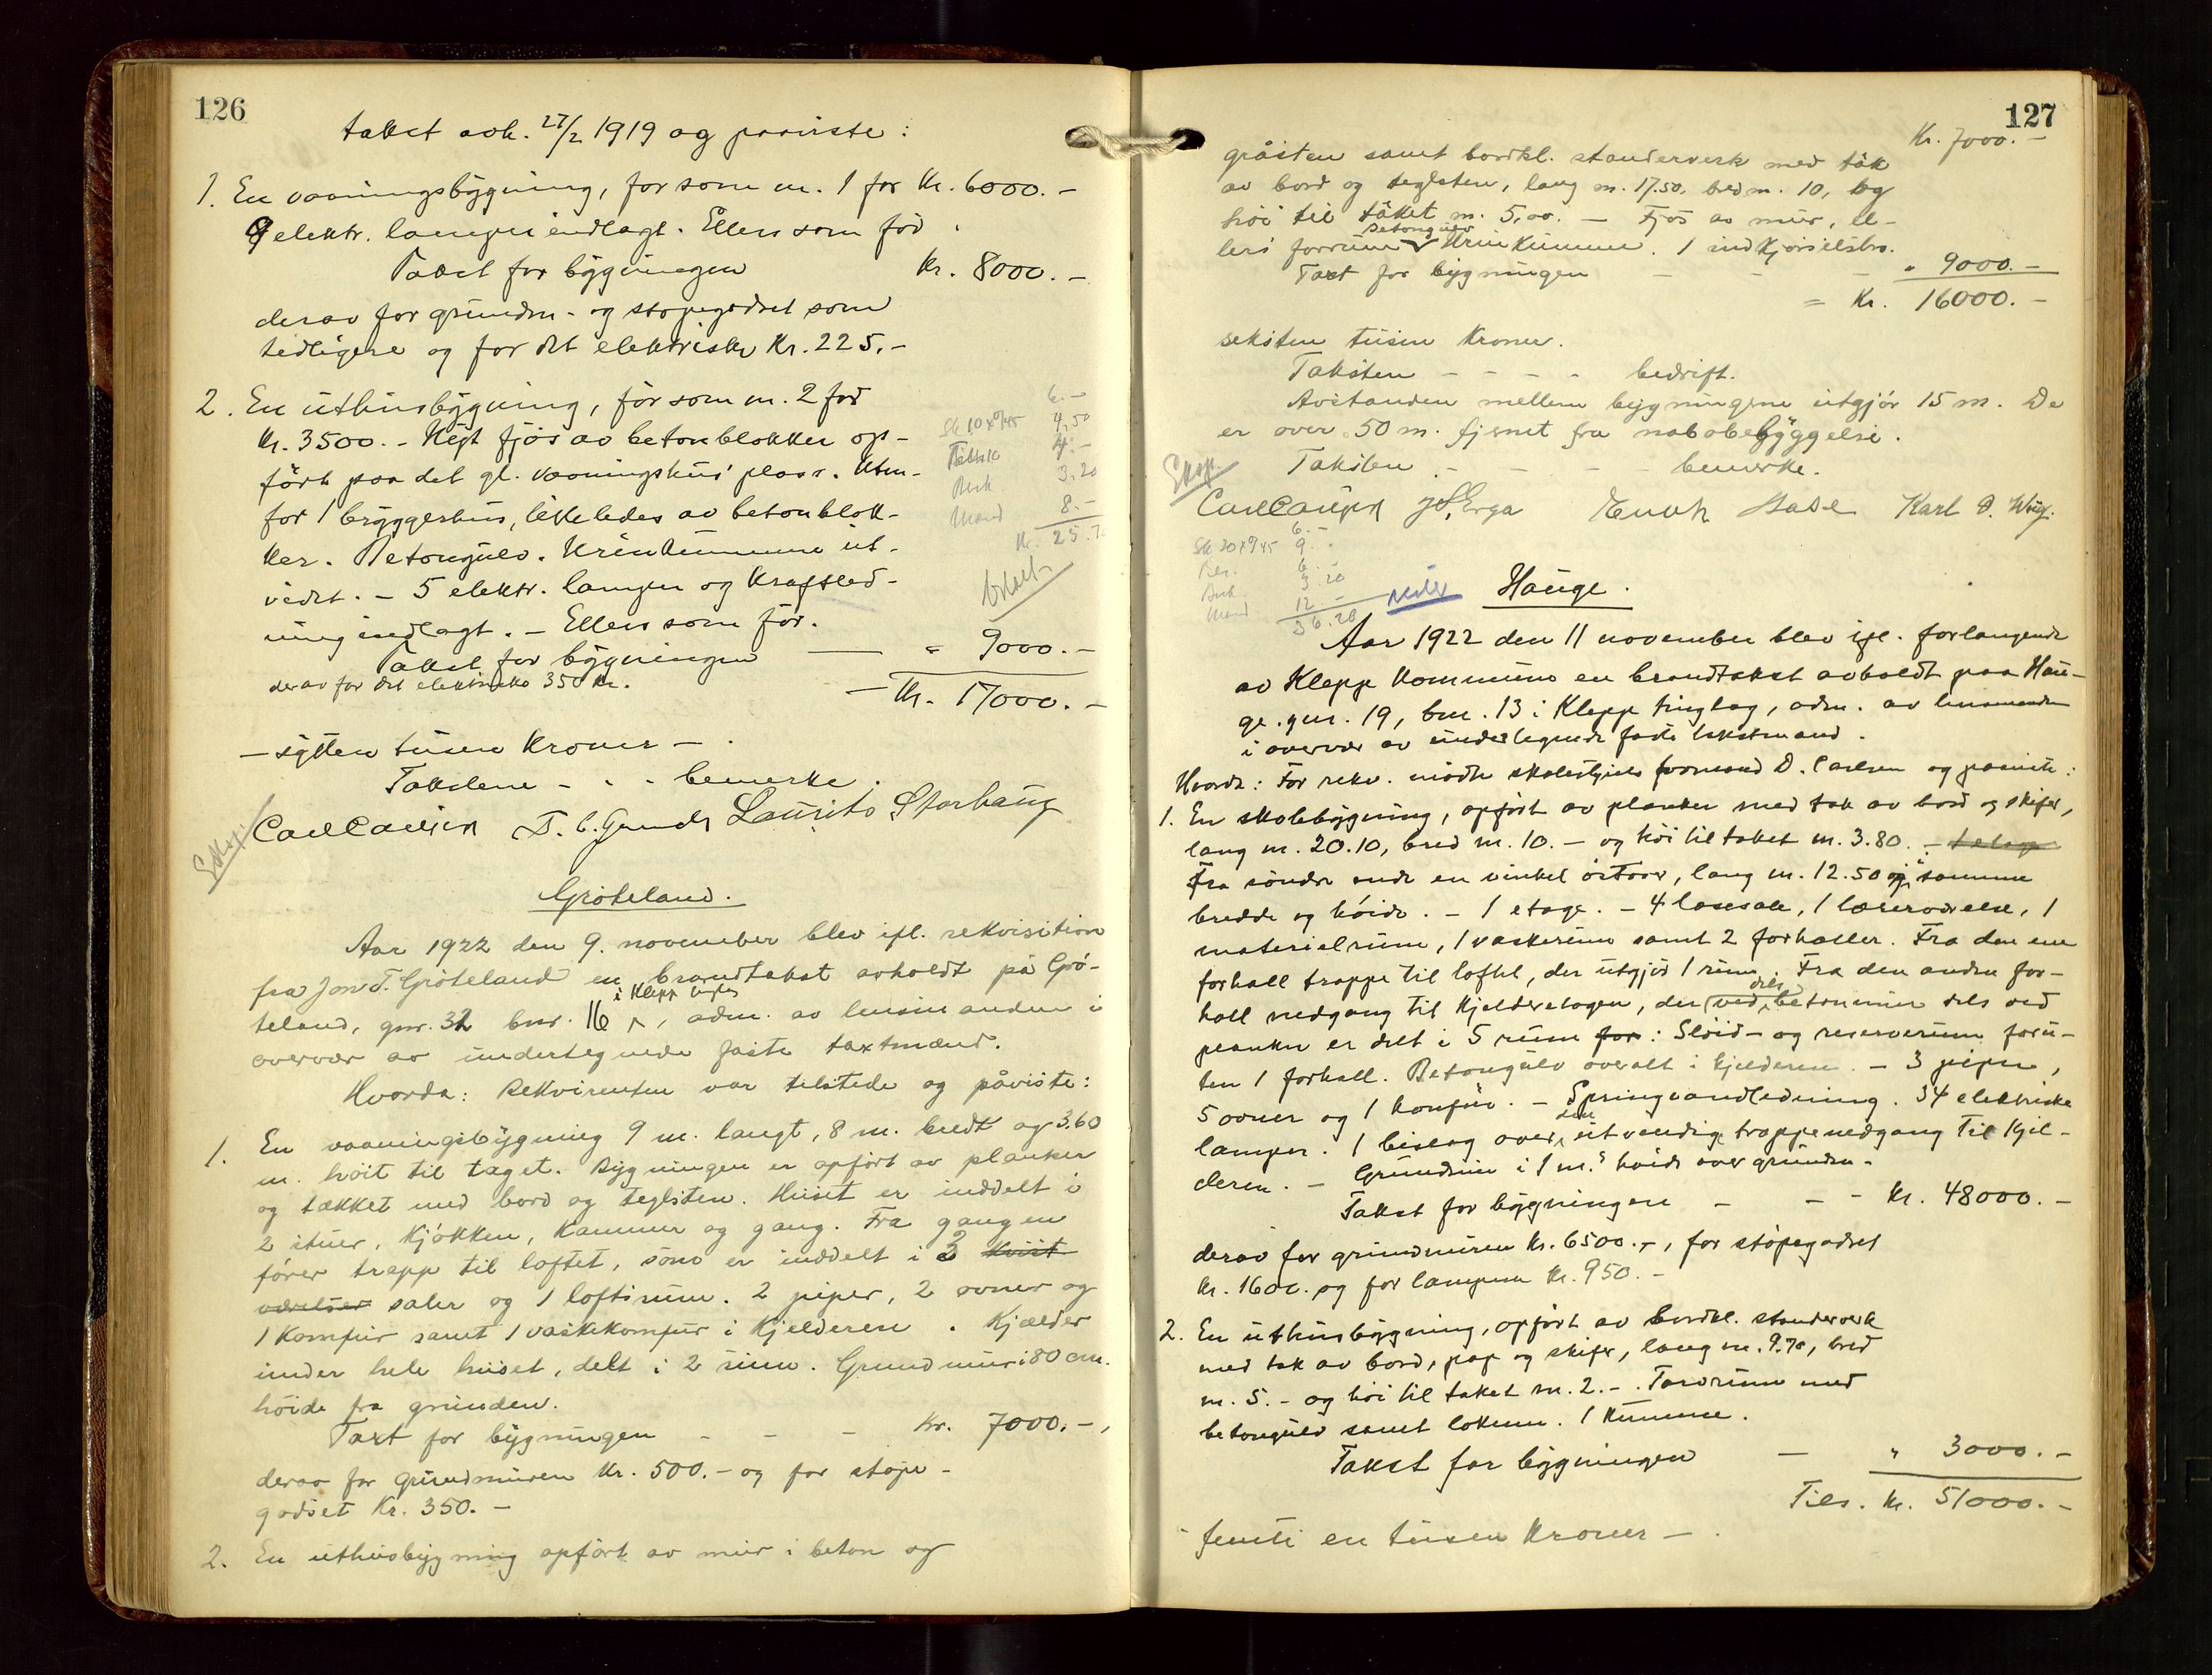 126
takst avh. 27/2 1919 og paaviste:
1. En vaaningsbygning, før som m. 1 for Kr. 6000.-
9 elektr. lamper indlagt. Ellers som før.
Takst for bygningen Kr. 8000.-
derav for grundm- og støpegodset som
tidligere og for det elektriske Kr. 225.-
2. En uthusbygning, før som m. 2 for
Kr. 3500.- Nyt fjøs av betonblokker op-
ført paa det gl. vaaningshus' plass. Uten-
for 1 bryggerhus, likeledes av betonblok-
ker. Betongulv. Urinkummene ut-
videt. - 5 elektr. lamper og kraftled-
ning indlagt. - Ellers som før.
Takst for bygningen — " 9000.-
derav for det elektriske 350 Kr.
— Kr. 17000.-
6.-
Sk 10 x 0/45 4,50
4.-
Besk 3.20
Mænd 8.-
Kr. 25.7
betalt
- sytten tusen kroner -.
Takstene - - - bemerke.
Eksp.
Carl Carlsen T. C. Grude Laurits Storhaug
Grøteland.
Aar 1922 den 9. november blev ifl. rekvisition
fra Jon T. Grøteland en brandtakst avholdt på Grø-
i Klepp tinglag
teland, gnr. 32 bnr. 16, adm. av lensmanden i
overvær av undertegnede faste taxtmænd.
Hvorda: Rekvirenten var tilstede og påviste:
1. En vaaningsbygning 9 m. langt, 8 m. bredt og 3.60
m. høit til taget. Bygningen er opført av planker
og tækket med bord og teglsten. Huset er inddelt i
2 stuer, kjøkken, kammer og gang. Fra gangen
fører trapp til loftet, som er inddelt i 3 kvist
værelser saler og 1 loftsrum. 2 piper, 2 ovner og
1 komfur samt 1 vaskekomfur i kjelderen. Kjælder
under hele huset, delt i 2 rum. Grundmur i 80 cm.
høide fra grunden.
Taxt for bygningen - - - Kr. 7000.-,
derav for grundmuren Kr. 500.- og for støpe-
godset Kr. 350.-
2. En uthusbygning opført av mur i beton og
127
Kr. 7000.-
gråsten samt bordkl. standerverk med tak
av bord og teglsten, lang m. 17.50, bred m. 10, og
høi til taket m. 5,00. - Fjøs av mur, el-
betongulv
lers forrum Urinkumme. 1 indkjørselsbro.
Taxt for bygningen - - - " 9000.-
= Kr. 16000.-
seksten tusen kroner.
Taksten - - - - bedrift.
Avstanden mellem bygningene utgjør 15 m. De
er over 50 m. fjernet fra nabobebyggelse.
Taksten - - - - bemerke.
Eksp.
Carl Carlsen J. S. Erga Enok Hase Karl O. Wiig.
6.-
Sk 20 x 0/45 9.-
6.-
Besk. 3.20
Mænd. 12.-
36.20
Hauge.
Aar 1922 den 11 november blev ifl. forlangende
av Klepp kommune en brandtakst avholdt paa Hau-
ge. gnr. 19, bnr. 13 i Klepp tinglag, adm. av lensmanden
i overvær av undertegnede faste takstmænd.
Hvorda: For rekv. møtte skolestyrets formand D. Carlsen og paaviste:
1. En skolebygning, opført av planker med tak av bord og skifer,
lang m. 20.10, bred m. 10.- og høi til taket m. 3.80. - 1 etage
Fra søndre ende en vinkel østover, lang m. 12.50 og samme
bredde og høide. - 1 etage. - 4 læsesale, 1 lærerværelse, 1
materialrum, 1 vaskerum samt 2 forhaller. Fra den ene
forhall trappe til loftet, der utgjør 1 rum. Fra den andre for-
dels
hall nedgang til kjelderetagen, der ved betonmur dels ved
planker er delt i 5 rum for: Sløid- og reserverum foru-
ten 1 forhall. Betongulv overalt i kjelderen. - 3 piper,
5 ovner og 1 komfur. - Springvandledning. 34 elektriske
den
lamper. 1 bislag over utvendig trappenedgang til kjel-
deren. - Grundmur i 1 m.s høide over grunden.
Takst for bygningen - - - Kr. 48000.-
derav for grundmuren Kr. 6500.-, for støpegodset
Kr. 1600. og for lampene Kr. 950.-
2. En uthusbygning, opført av bordkl. standerverk
med tak av bord, pap og skifer, lang m. 9.70, bred
m. 5.- og høi til taket m. 2.-. Torvrum med
betongulv samt lokum. 1 kumme.
Takst for bygningen — " 3000.-
Tils. Kr. 51000.-
- femti en tusen kroner -.